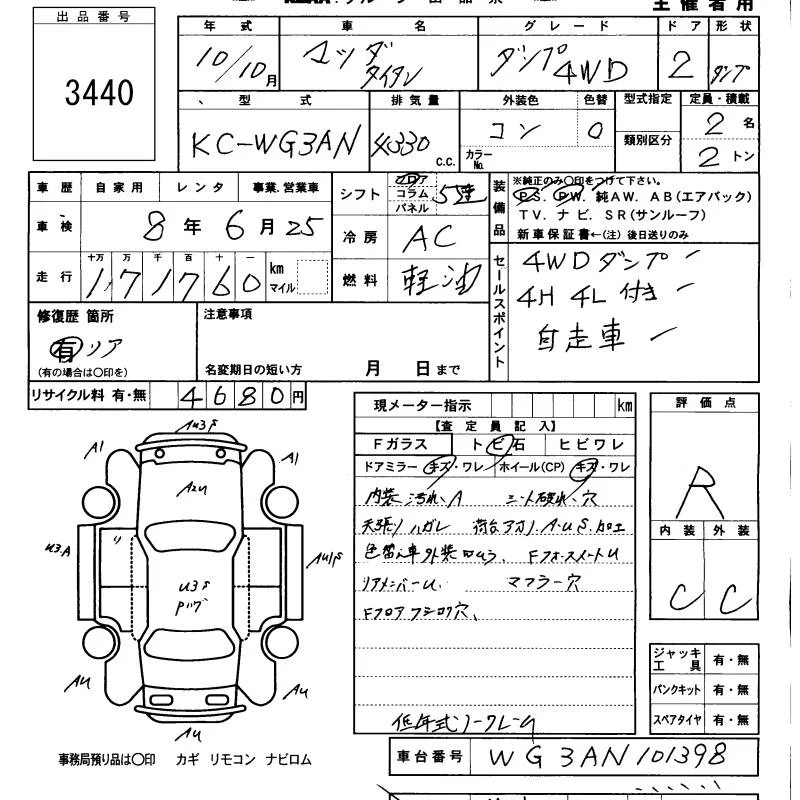 主催者用
出品番号
3440
年式 車名 グレード ドア 形状
10/10月 マツダ タイタン ダンプ 4WD 2 ダンプ
型式 排気量 外装色 色替 型式指定 定員・積載
KC-WG3AN 4330 c.c. コン 0 2名
カラーNo. 類別区分 2トン
車歴 自家用 レンタ 事業.営業車
シフト フロア コラム パネル 5速
装備品 ※純正のみ〇印をつけて下さい。
P.S. P.W. 純AW. AB(エアバック)
TV. ナビ. SR(サンルーフ)
新車保証書←(注) 後日送りのみ
車検 8年6月25
冷房 AC
走行 十万 万 千 百 十 一 km マイル
171760
燃料 軽油
セールスポイント
4WDダンプ
4H 4L 付き
自走車
修復歴 箇所
有 リア
(有の場合は〇印を)
注意事項
名変期日の短い方 月 日まで
リサイクル料 有・無 4680円
現メーター指示 km
【査定員記入】
Fガラス トビ石 ヒビワレ
ドアミラー キズ・ワレ ホイール(CP) キズ・ワレ
内装 汚れ、A シート破れ、穴
天張り ハガレ 荷台アカリ.A.U.S.加工
色替え車外装
リアメンバーU. マフラー穴
Fフロア 穴、
低年式ノークレーム
評価点
R
内装 外装
C C
ジャッキ 工具 有・無
パンクキット 有・無
スペアタイヤ 有・無
A1
A1
A2U
U3.A
U3S
AU
AU
AU
事務局預り品は〇印 カギ リモコン ナビロム
車台番号 WG3AN101398